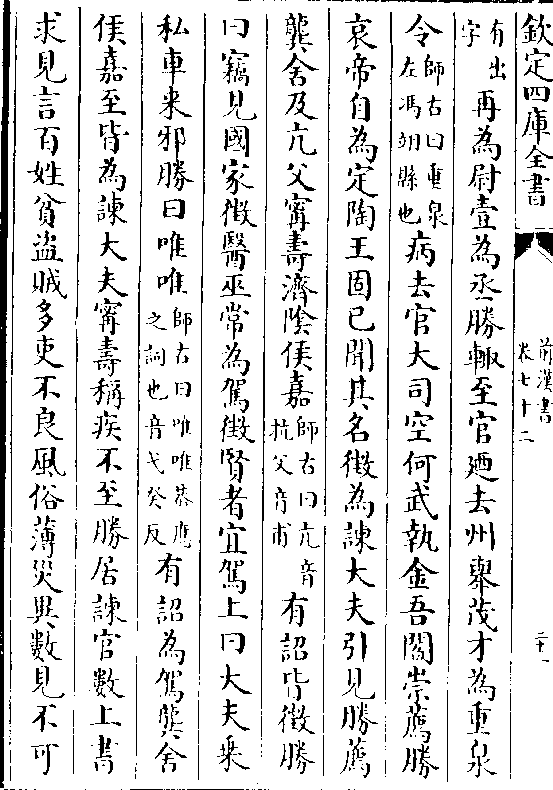 欽定四庫全書
前漢書
卷七十二
二十一
有出
字
再為尉壹為丞勝輙至官廼去州舉茂才為重泉
令
師古曰重泉
左馮翊縣也
病去官大司空何武執金吾閻崇薦勝
哀帝自為定陶王固已聞其名徵為諫大夫引見勝薦
龔舍及亢父甯壽濟陰侯嘉
師古曰亢音
抗父音甫
有詔皆徵勝
曰竊見國家徵醫巫常為駕徵賢者宜駕上曰大夫乗
私車来邪勝曰唯唯
師古曰唯唯恭應
之詞也音弋癸反
有詔為駕龔舍
侯嘉至皆為諫大夫甯壽稱疾不至勝居諫官數上書
求見言百姓貧盜賊多吏不良風俗薄災異數見不可